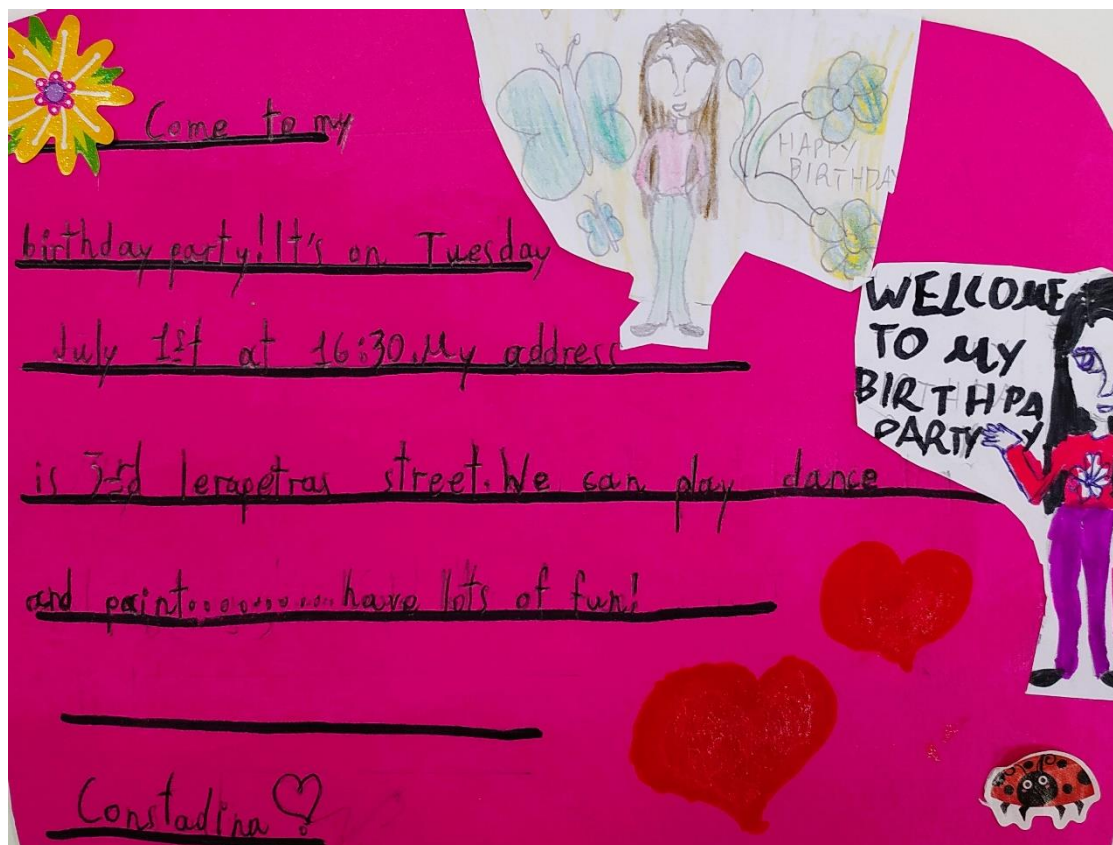 Come to my
birthday party! It's on Tuesday
July 1st at 16:30. My address
is 3rd Ierapetras street. We can play dance
and paint.......... have lots of fun!
Constadina
HAPPY
BIRTHDAY
WELCOME
TO MY
BIRTHDAY
PARTY